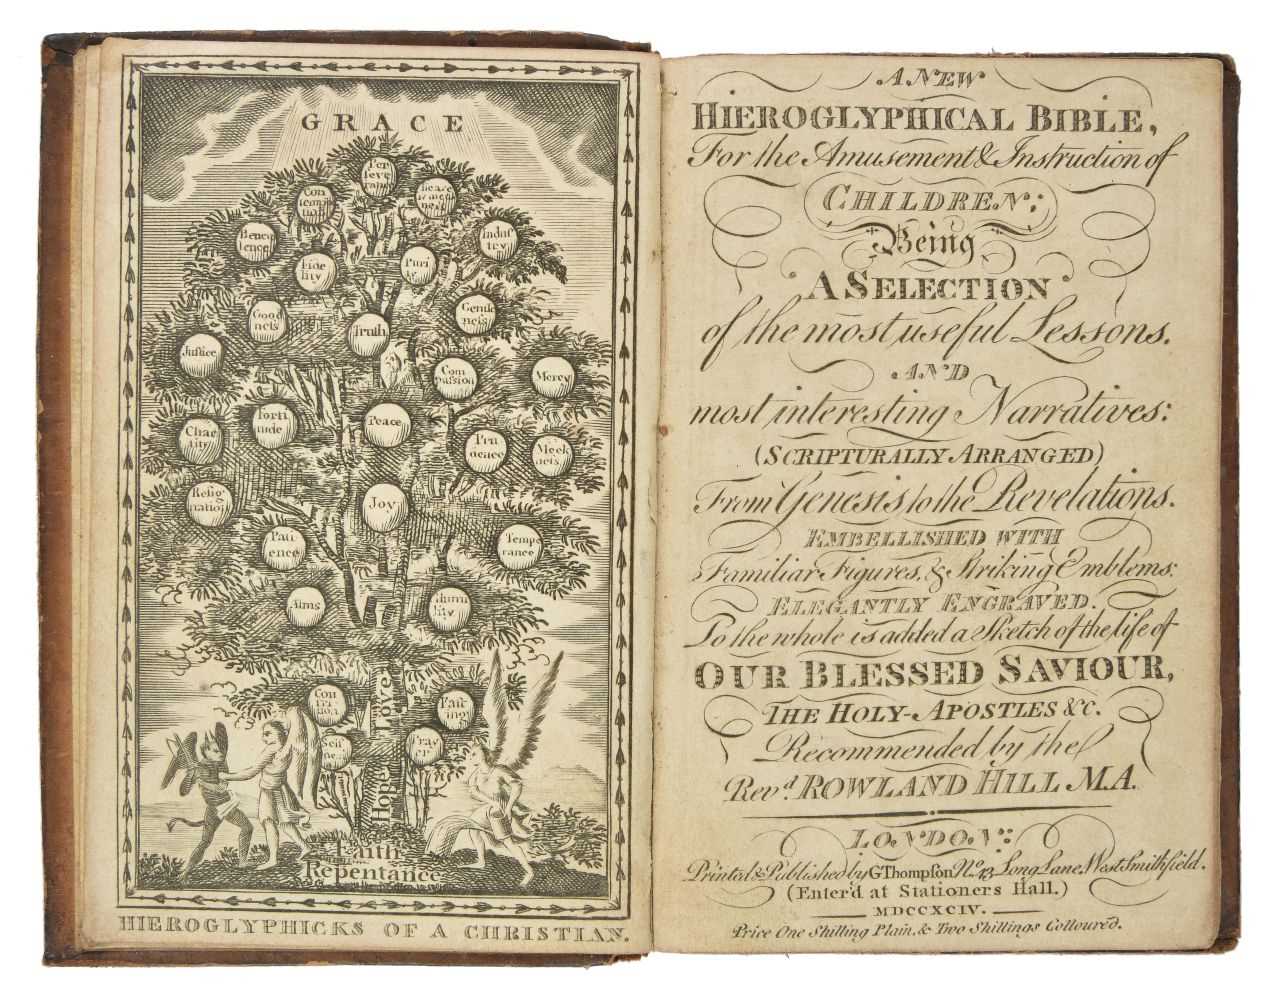 GRACE
Per
seve
rance
Con
templ
nation
Peace
Benev
olence
Indus
try
Fide
lity
Puri
ty
Good
nefs
Gentle
nefs
Truth
Justice
Com
passion
Mercy
Forti
tude
Peace
Chas
tity
Pru
dence
Meek
nefs
Resig
nation
Joy
Pati
ence
Tempe
rance
Alms
Humi
lity
Con
triti
on
Fast
ing
Self
Pray
er
Love
Hope
Faith
Repentance
HIEROGLYPHICKS OF A CHRISTIAN.
A NEW
HIEROGLYPHICAL BIBLE,
For the Amusement & Instruction of
CHILDREN:
Being
A SELECTION
of the most useful Lessons.
AND
most interesting Narratives:
(SCRIPTURALLY ARRANGED)
From Genesis to the Revelations.
EMBELLISHED WITH
Familiar Figures, & Striking Emblems:
ELEGANTLY ENGRAVED.
To the whole is added a Sketch of the life of
OUR BLESSED SAVIOUR,
THE HOLY-APOSTLES &c.
Recommended by the
Revd. ROWLAND HILL M.A.
LONDON:
Printed & Published by G Thompſon No. 43 Long Lane, West Smithfield.
(Enter'd at Stationers Hall.)
MDCCXCIV.
Price One Shilling Plain, & Two Shillings Colloured.